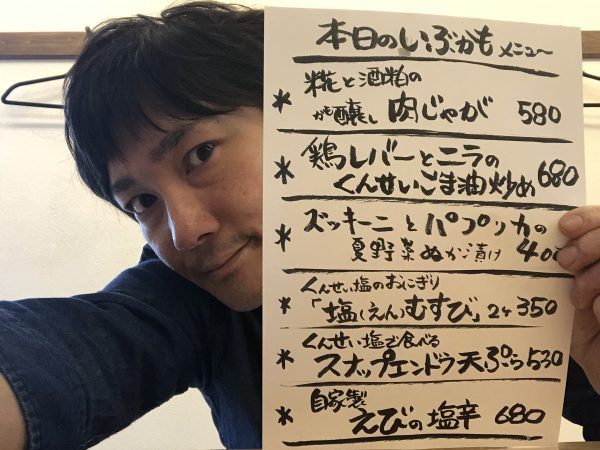 本日のいぶかもメニュー
* 糀と酒粕の
かも醸し 肉じゃが 580
* 鶏レバーとニラの
くんせいごま油炒め 680
* ズッキーニとパプリカの
夏野菜ぬか漬け 400
くんせい塩のおにぎり
* 「塩(えん)むすび」2ヶ 350
くんせい塩で食べる
* スナップエンドウ天ぷら 530
* 自家製
えびの塩辛 680